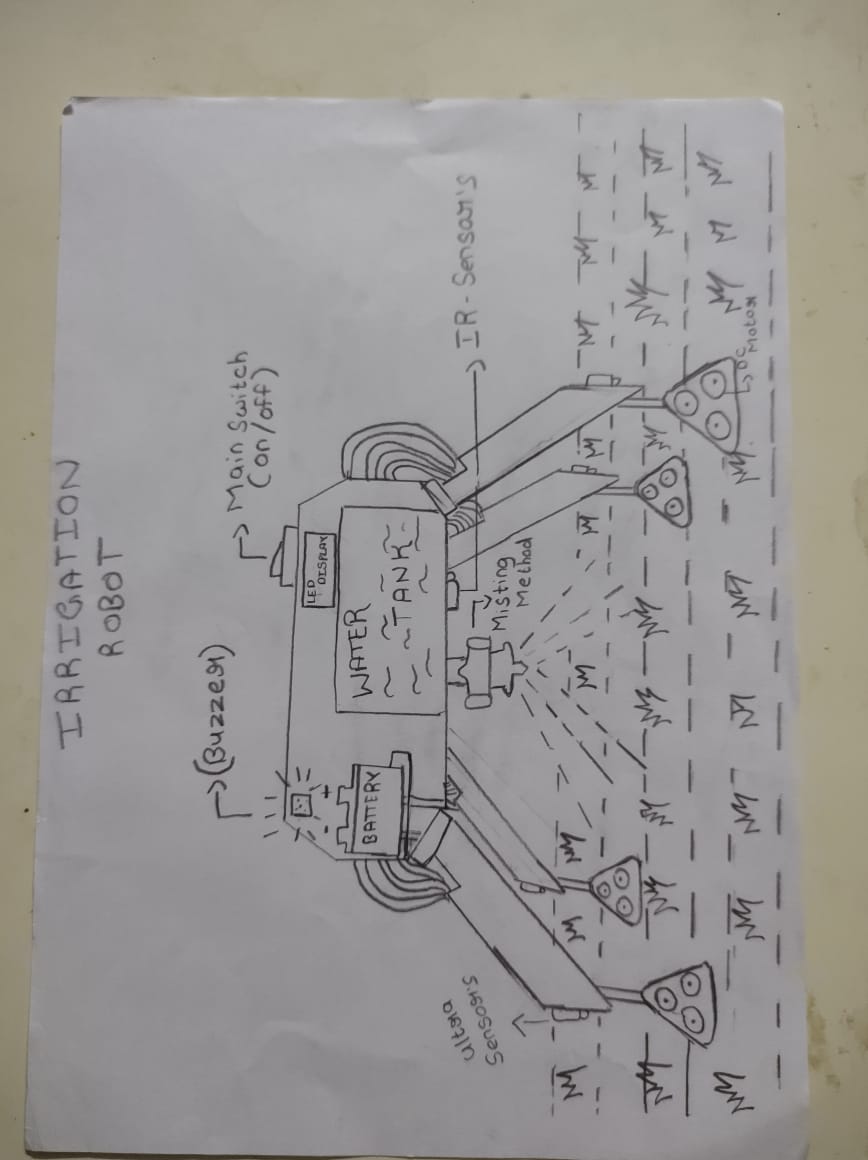 IRRIGATION
ROBOT
(Buzzer)
Main Switch
(on/off)
LED
DISPLAY
- +
BATTERY
WATER
TANK
Ultra
Sensor's
IR-Sensor's
Misting
Method
DC
Motor